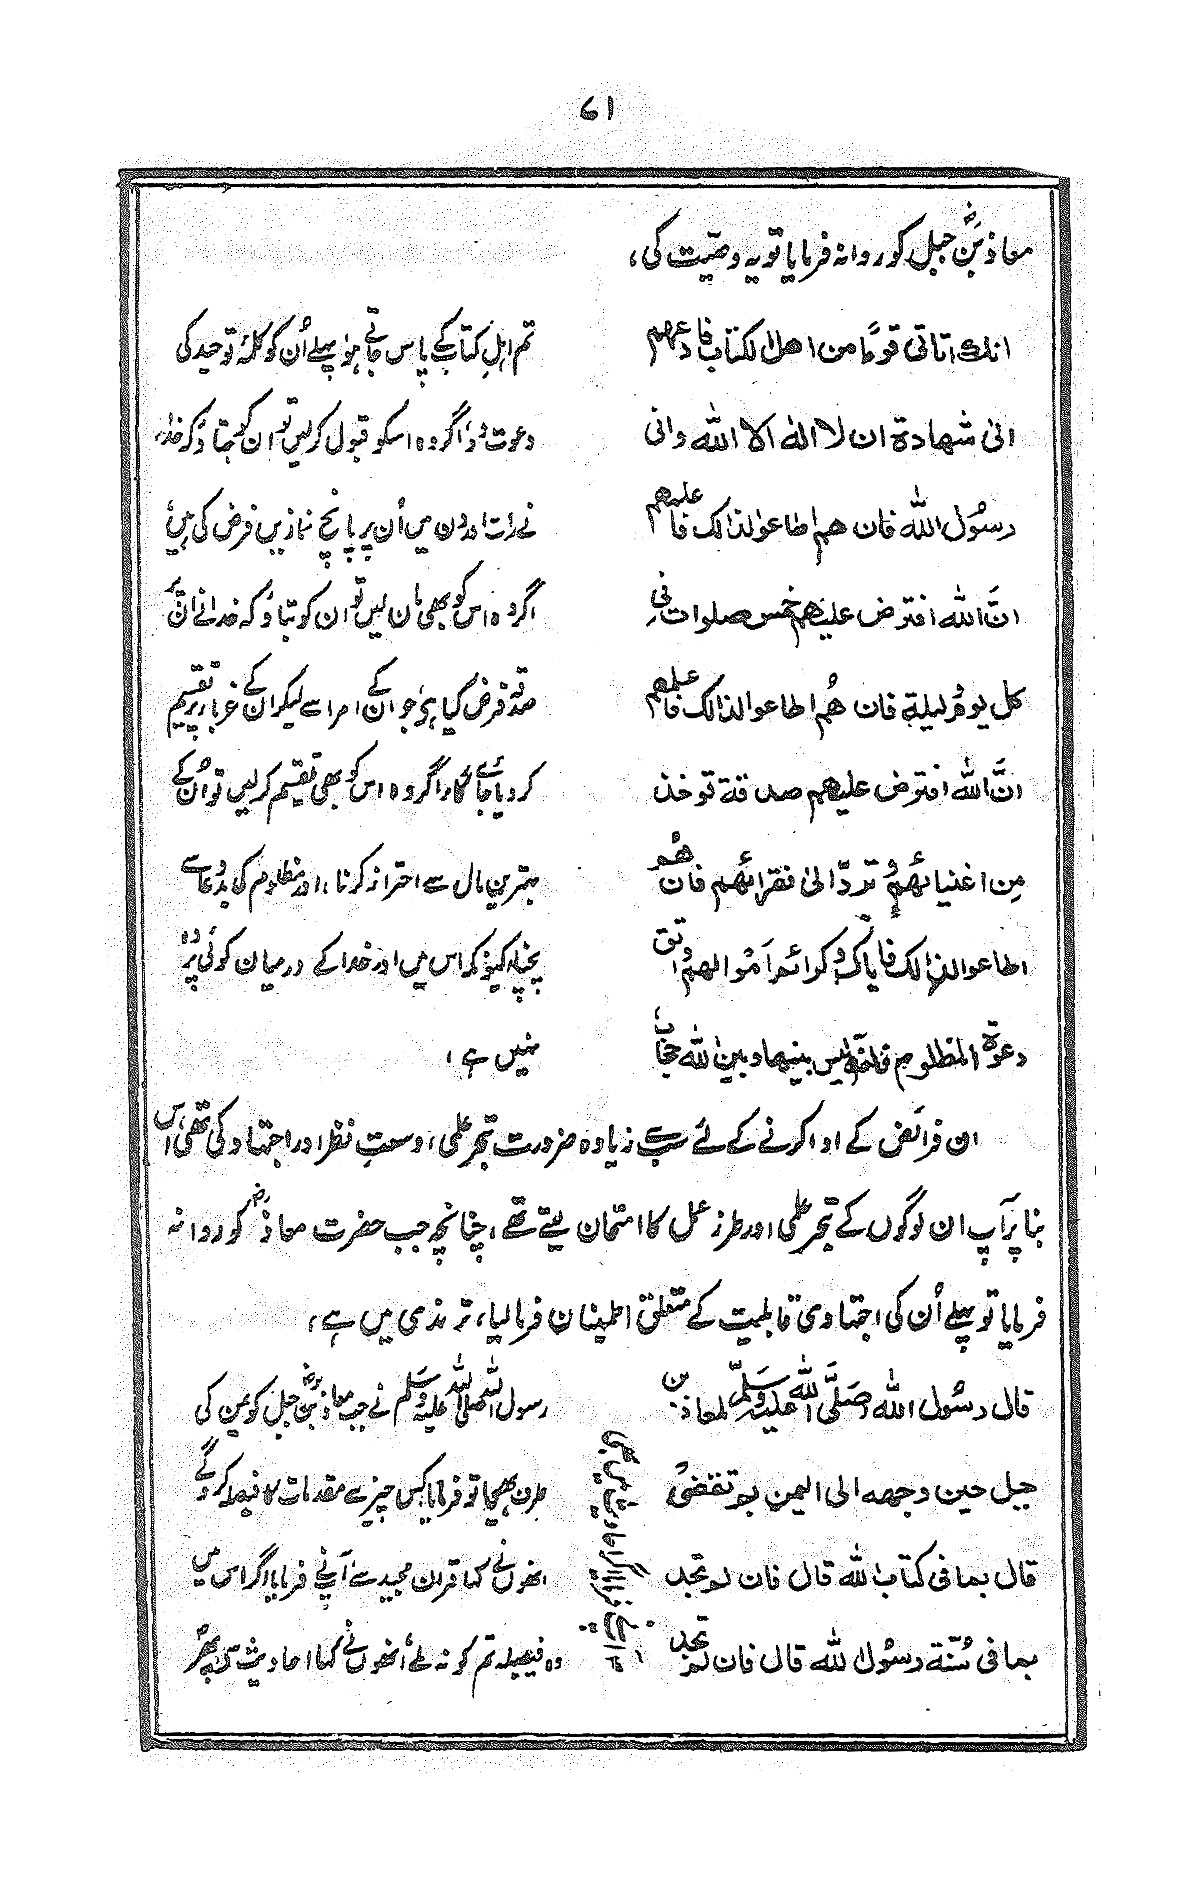 ۷۱
معاذؓ بن جبل کو روانہ فرمایا تو یہ وصیّت کی،
انك تاتی قومًا من اهل الكتاب فادعهم
الیٰ شهادة ان لا اله الا الله وانی
رسول الله فان هم اطاعوا لذالك فاعلمهم
انّ الله افترض عليهم خمس صلوات فی
كل يوم وليلة فان هُم اطاعوا لذالك فاعلمهم
انّ الله افترض عليهم صدقة توخذ
مِن اغنيائهم تُردّ الیٰ فقرائهم فان هم
اطاعوا لذالك فاياك وكرائم اموالهم واتق
دعوة المظلوم فانه ليس بينها وبين الله حجاب
تم اہلِ کتاب کے پاس جاتے ہو، پہلے اُن کو کلمۂ توحید کی
دعوت دو، اگر وہ اسکو قبول کرلیں تو ان کو بتاؤ کہ خدا
نے رات اور دن میں اُن پر پانچ نمازیں فرض کی ہیں،
اگر وہ اس کو بھی مان لیں تو ان کو بتاؤ کہ خدا نے ان پر
صدقہ فرض کیا ہی جو ان کے امرا سے لیکر ان کے غربا پر تقسیم
کر دیا جائے گا، اگر وہ اس کو بھی تقسیم کرلیں تو اُن کے
بہترین مال سے احتراز کرنا، اور مظلوم کی بددُعا سے
بچنا، کیونکہ اس میں اور خدا کے درمیان کوئی پردہ
نہیں ہے،
ان فرائض کے ادا کرنے کے لئے سب سے زیادہ ضرورت تبحر علمی، وسعتِ نظر اور اجتہاد کی تھی، اس
بنا پر آپ ان لوگوں کے تبحر علمی اور طرز عمل کا امتحان لیتے تھے، چنانچہ جب حضرت معاذؓ کو روانہ
فرمایا تو پہلے اُن کی اجتہادی قابلیت کے متعلق اطمینان فرما لیا، ترمذی میں ہے،
قال رسول الله صلّی الله علیه وسلّم لمعاذ بن
جبل حين وجهه الی الیمن بم تقضی
قال بما فی كتاب الله قال فان لم تجد
بما فی سُنّة رسول الله قال فان لم تجد
رسول اللہ صلی اللہ علیہ وسلم نے جب معاذؓ بن جبل کو یمن کی
طرف بھیجا تو فرمایا کس چیز سے مقدمات کا فیصلہ کروگے
انھوں نے کہا قرآن مجید سے آپ نے فرمایا اگر اس میں
وہ فیصلہ تم کو نہ ملے، انھوں نے کہا احادیث سے، پھر
آپ نے فرمایا اگر احادیث میں بھی